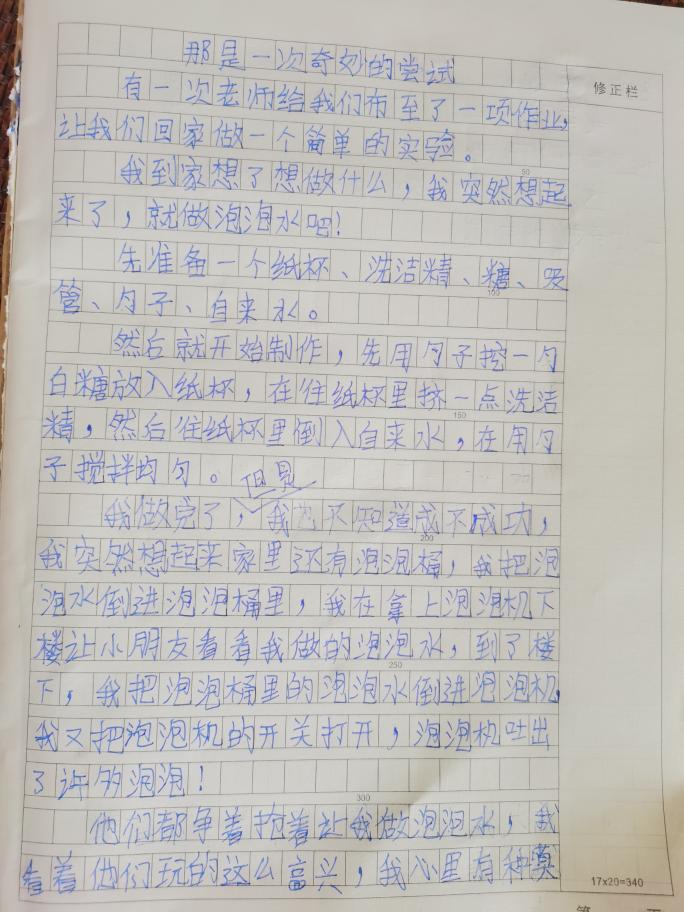 那是一次奇妙的尝试
修正栏
有一次老师给我们布至了一项作业,
让我们回家做一个简单的实验。
50
我到家想了想做什么,我突然想起
来了,就做泡泡水吧!
先准备一个纸杯、洗洁精、糖、吸
100
管、勺子、自来水。
然后就开始制作,先用勺子挖一勺
白糖放入纸杯,在住纸杯里挤一点洗洁
150
精,然后住纸杯里倒入自来水,在用勺
子搅拌均匀。
但是
我做完了,我也不知道成不成功,
200
我突然想起来家里还有泡泡桶,我把泡
泡水倒进泡泡桶里,我在拿上泡泡机下
楼让小朋友看看我做的泡泡水,到了楼
250
下,我把泡泡桶里的泡泡水倒进泡泡机,
我又把泡泡机的开关打开,泡泡机吐出
了许多泡泡!
300
他们都争着抢着让我做泡泡水,我
看着他们玩的这么高兴,我心里有种莫
17x20=340
第 页